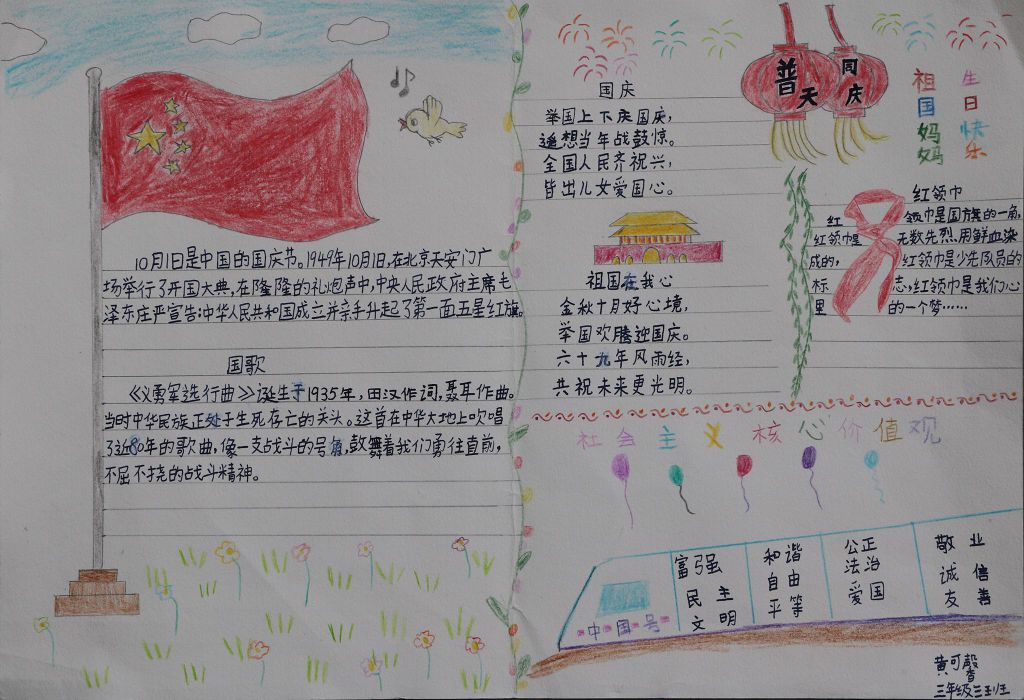 10月1日是中国的国庆节。1949年10月1日,在北京天安门广
场举行了开国大典,在隆隆的礼炮声中,中央人民政府主席毛
泽东庄严宣告:中华人民共和国成立并亲手升起了第一面五星红旗。
国歌
《义勇军进行曲》诞生于1935年,田汉作词,聂耳作曲。
当时中华民族正处于生死存亡的关头。这首在中华大地上吹唱
了近80年的歌曲,像一支战斗的号角,鼓舞着我们勇往直前,
不屈不挠的战斗精神。
国庆
举国上下庆国庆,
遥想当年战鼓惊。
全国人民齐祝兴,
皆出儿女爱国心。
祖国在我心
金秋十月好心境,
举国欢腾迎国庆。
六十九年风雨经,
共祝未来更光明。
普天
同庆
祖国妈妈
生日快乐
红领巾
红 领巾是国旗的一角,
红领巾是 无数先烈用鲜血染
成的, 红领巾是少先队员的
标 志,红领巾是我们心
里 的一个梦……
社会主义核心价值观
富强
民主
文明
和谐
自由
平等
公正
法治
爱国
敬业
诚信
友善
中国号
黄可馨
三年级三班